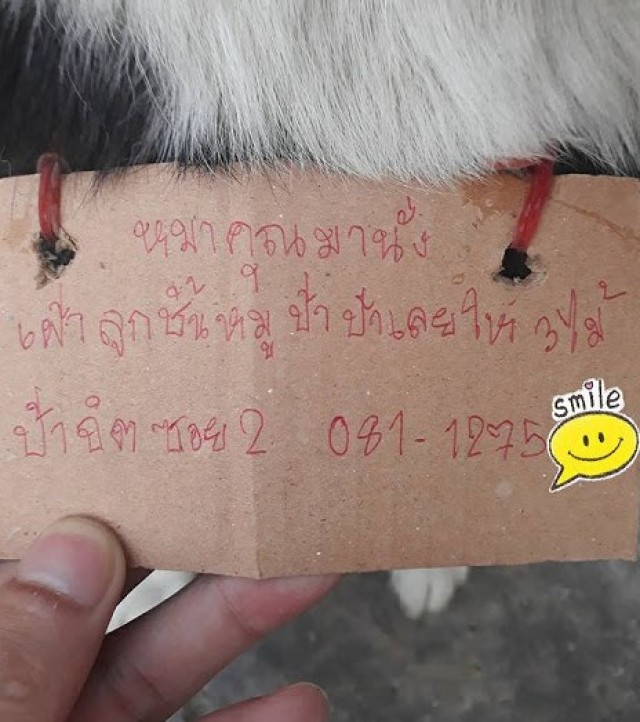 หมาคุณมานั่ง
เฝ้าลูกชิ้นหมูป้า ป้าเลยให้ 3 ไม้
ป้าจิต ซอย 2 081-1275
smile